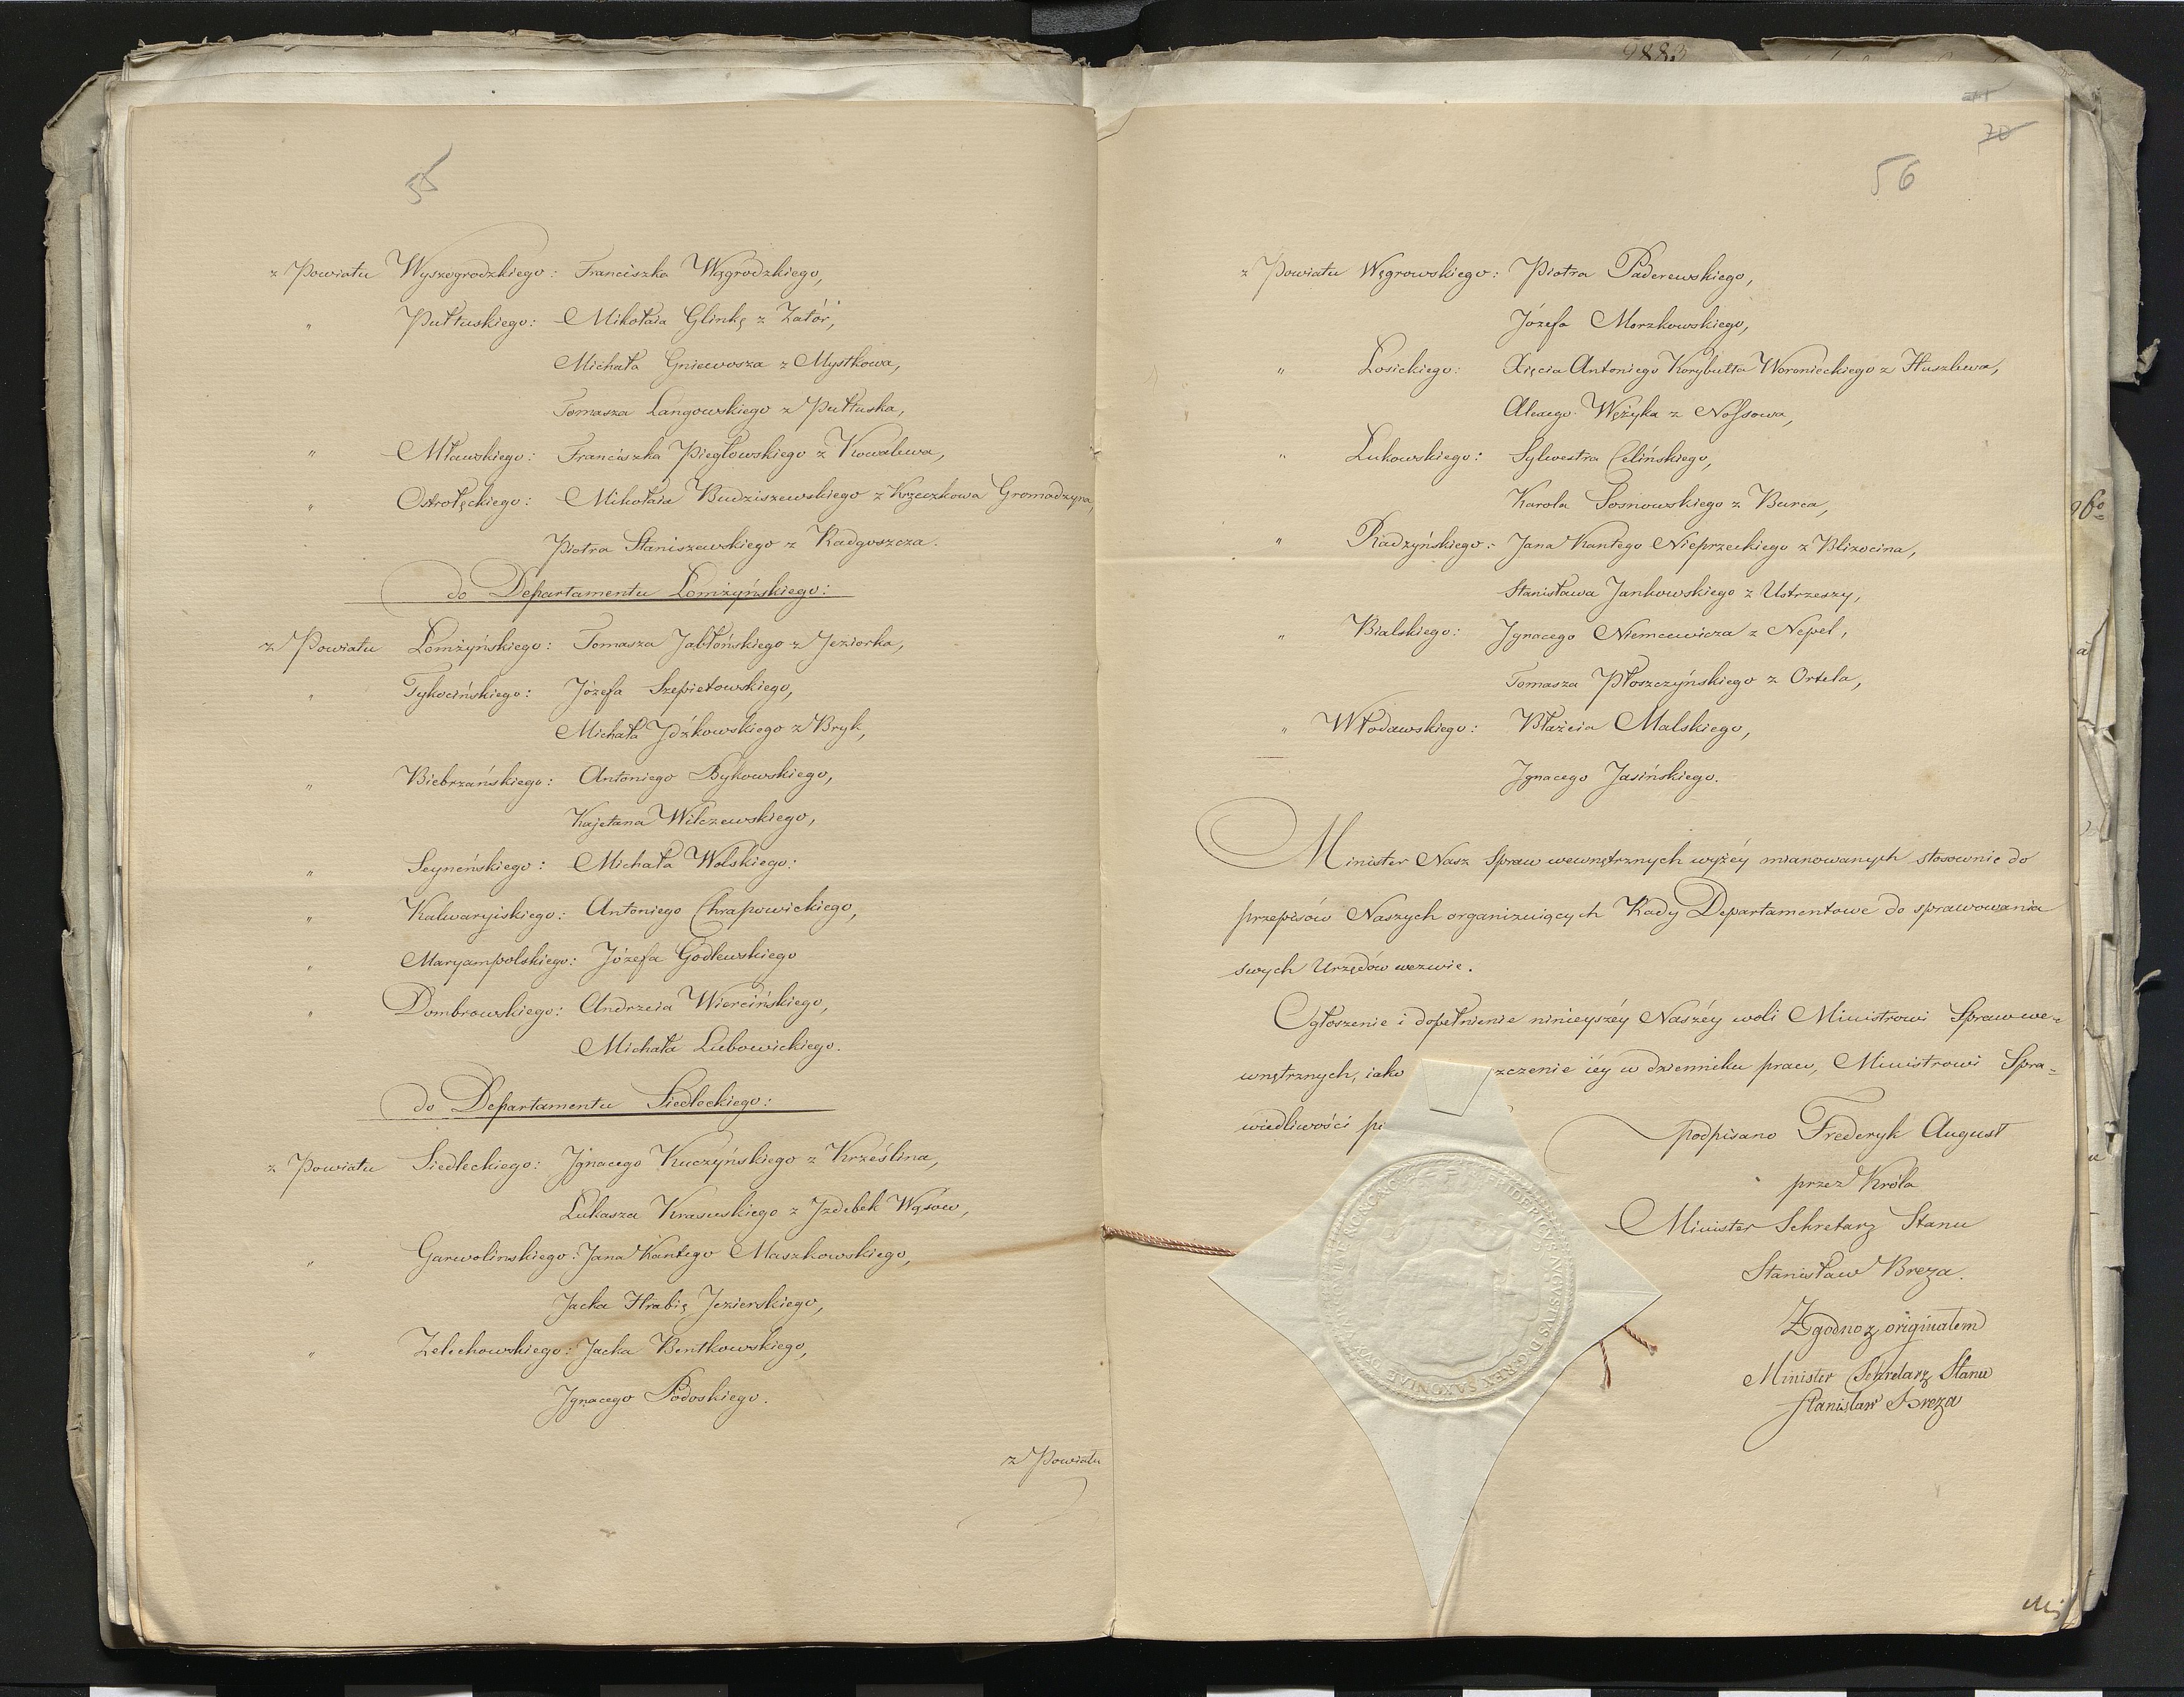 55
z Powiatu Wyszogrodzkiego: Franciszka Wągrodzkiego,
" Pułtuskiego: Mikołaia Glinkę z Zatór,
Michała Gniewosza z Mystkowa,
Tomasza Langowskiego z Pułtuska,
" Mławskiego: Franciszka Piegłowskiego z Kowalewa,
" Ostrołęckiego: Mikołaia Budziszewskiego z Krzeczkowa Gromadzyna,
Piotra Staniszewskiego z Radgoszcza.
do Departamentu Łomżyńskiego:
z Powiatu Łomżyńskiego: Tomasza Jabłońskiego z Jeziorka,
" Tykocińskiego: Józefa Szepietowskiego,
Michała Jdźkowskiego z Bryk,
" Biebrzańskiego: Antoniego Bykowskiego,
Kajetana Wilczewskiego,
" Seyneńskiego: Michała Wolskiego:
" Kalwaryiskiego: Antoniego Chrapowickiego,
" Maryampolskiego: Józefa Godlewskiego
" Dombrowskiego: Andrzeia Wiercińskiego,
Michała Lubowickiego.
do Departamentu Siedleckiego:
z Powiatu Siedleckiego: Jgnacego Kuczyńskiego z Krześlina,
Łukasza Krasuskiego z Jzdebek Wąsów,
" Garwolinskiego: Jana Kantego Maszkowskiego,
Jacka Hrabię Jezierskiego,
" Zelechowskiego: Jacka Bentkowskiego,
Jgnacego Podoskiego.
z Powiatu
9883
71
70
56
z Powiatu Węgrowskiego: Piotra Paderewskiego,
Józefa Morzkowskiego,
" Łosickiego: Xięcia Antoniego Korybutta Woronieckiego z Huszlewa,
Alexego Wężyka z Nossowa,
" Łukowskiego: Sylwestra Celińskiego,
Karola Sosnowskiego z Burca,
" Radzyńskiego: Jana Kantego Nieprzeckiego z Blizocina,
Stanisława Jankowskiego z Ustrzeszy,
" Bialskiego: Jgnacego Niemcewicza z Nepel,
Tomasza Płoszczyńskiego z Ortela,
" Włodawskiego: Błażeia Malskiego,
Jgnacego Jasińskiego.
Minister Nasz Spraw wewnętrznych wyżéy mianowanych stosownie do
przepisów Naszych organizuiących Rady Departamentowe do sprawowania
swych Urzędów wezwie.
Ogłoszenie i dopełnienie ninieyszéy Naszéy woli Ministrowi Spraw we=
wnętrznych, iako zczenie iéy w dzienniku praw, Ministrowi Spra=
wiedliwości
podpisano Frederyk August
przez Króla
Minister Sekretarz Stanu
Stanisław Breza.
Zgodno z originałem
Minister Sekretarz Stanu
Stanisław Breza
FRIDERICVS AVGVSTVS D. G. REX SAXONIAE